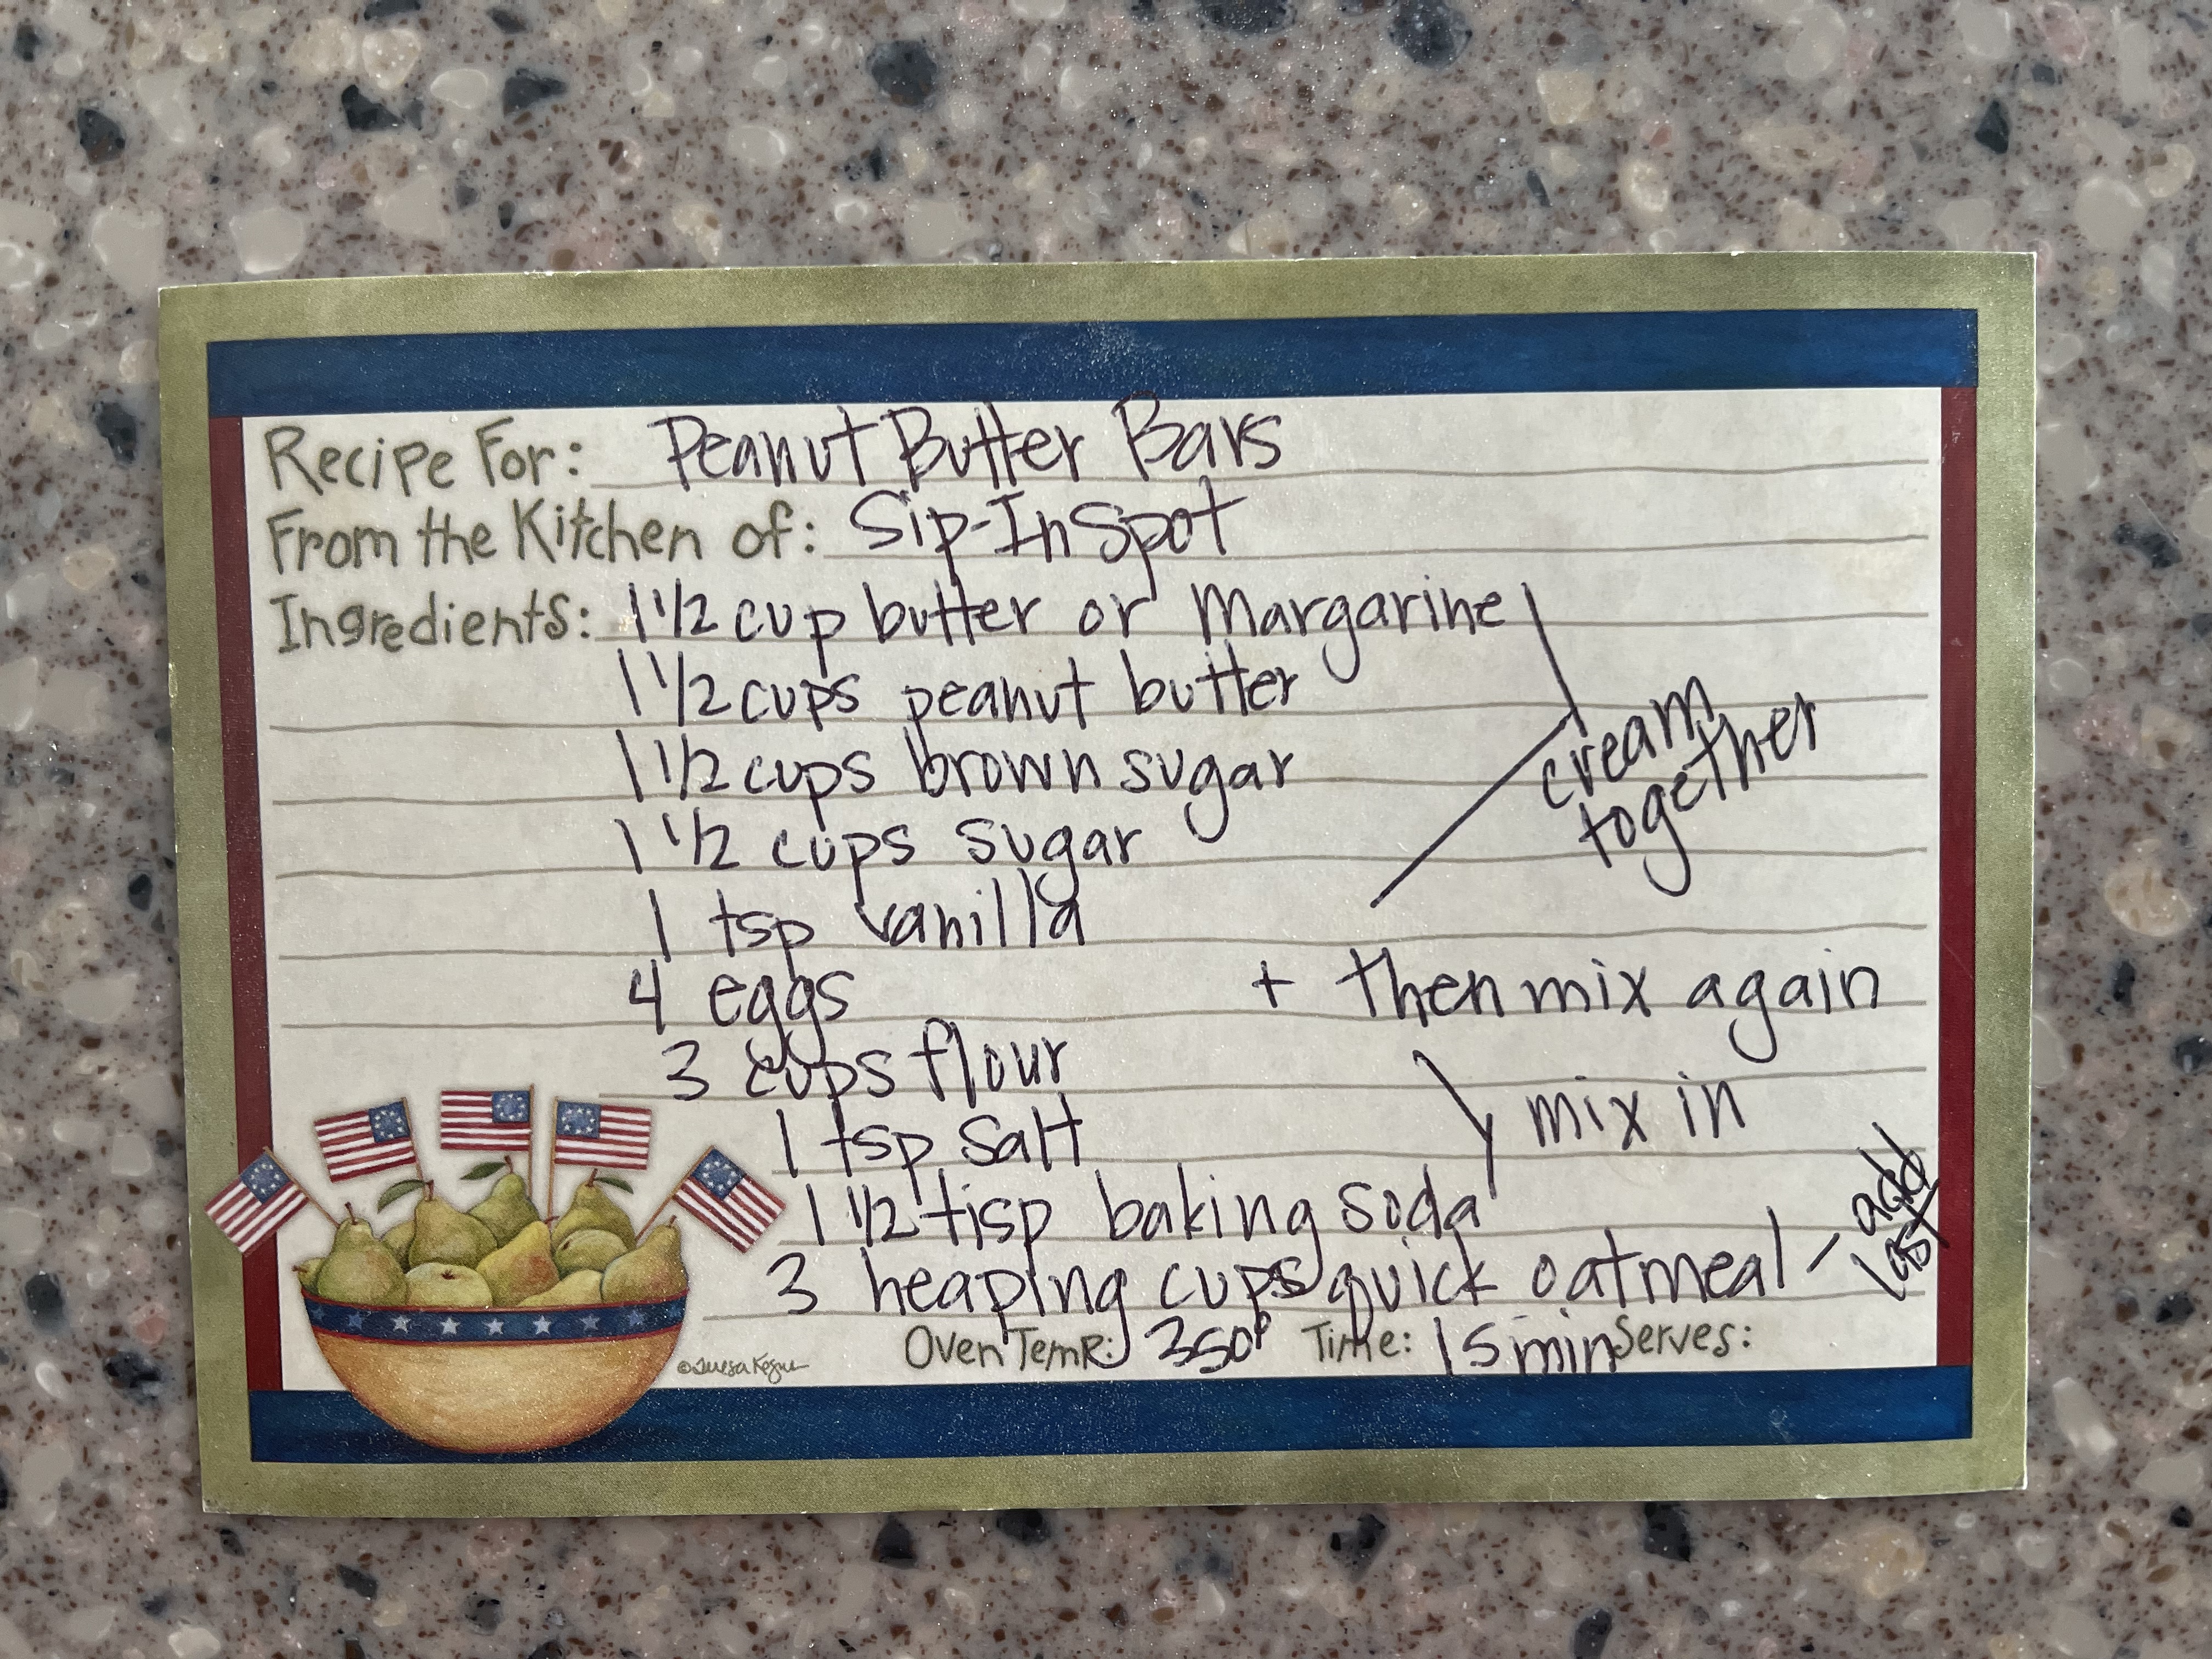 Recipe For: Peanut Butter Bars
From the Kitchen of: Sip-In Spot
Ingredients: 1 1/2 cup butter or Margarine
1 1/2 cups peanut butter
1 1/2 cups brown sugar
cream
together
1 1/2 cups sugar
1 tsp vanilla
4 eggs + then mix again
3 cups flour
mix in
1 tsp salt
1 1/2 tsp baking soda
3 heaping cups quick oatmeal - add
last
Oven Temp: 350° Time: 15 min Serves: